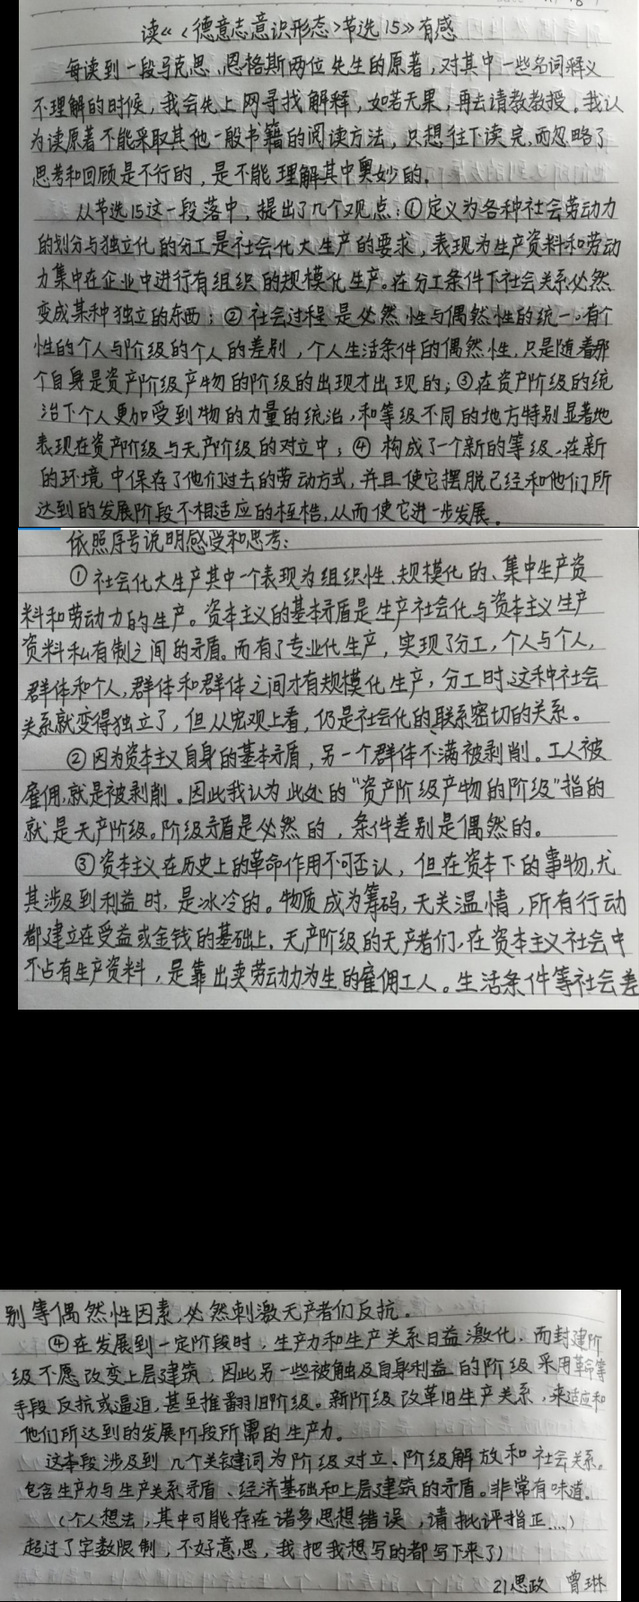 读《<德意志意识形态>节选15》有感
每读到一段马克思、恩格斯两位先生的原著,对其中一些名词释义
不理解的时候,我会先上网寻找解释,如若无果,再去请教教授。我认
为读原著不能采取其他一般书籍的阅读方法,只想往下读完,而忽略了
思考和回顾是不行的,是不能理解其中奥妙的。
从节选15这一段落中,提出了几个观点:①定义为各种社会劳动力
的划分与独立化的分工是社会化大生产的要求,表现为生产资料和劳动
力集中在企业中进行有组织的规模化生产。在分工条件下社会关系必然
变成某种独立的东西;②社会过程是必然性与偶然性的统一。有个
性的个人与阶级的个人的差别,个人生活条件的偶然性,只是随着那
个自身是资产阶级产物的阶级的出现才出现的;③在资产阶级的统
治下个人更加受到物的力量的统治,和等级不同的地方特别显著地
表现在资产阶级与无产阶级的对立中;④构成了一个新的等级、在新
的环境中保存了他们过去的劳动方式,并且使它摆脱已经和他们所
达到的发展阶段不相适应的桎梏,从而使它进一步发展。
依照序号说明感受和思考:
①社会化大生产其中一个表现为组织性、规模化的、集中生产资
料和劳动力的生产。资本主义的基本矛盾是生产社会化与资本主义生产
资料私有制之间的矛盾。而有了专业化生产,实现了分工,个人与个人,
群体和个人,群体和群体之间才有规模化生产,分工时这种社会
关系就变得独立了,但从宏观上看,仍是社会化的、联系密切的关系。
②因为资本主义自身的基本矛盾,另一个群体不满被剥削。工人被
雇佣,就是被剥削。因此我认为此处的“资产阶级产物的阶级”指的
就是无产阶级。阶级矛盾是必然的,条件差别是偶然的。
③资本主义在历史上的革命作用不可否认,但在资本下的事物,尤
其涉及到利益时,是冰冷的。物质成为筹码,无关温情,所有行动
都建立在受益或金钱的基础上。无产阶级的无产者们,在资本主义社会中
不占有生产资料,是靠出卖劳动力为生的雇佣工人。生活条件等社会差
别等偶然性因素,必然刺激无产者们反抗。
④在发展到一定阶段时,生产力和生产关系日益激化,而封建阶
级不愿改变上层建筑,因此另一些被触及自身利益的阶级采用革命等
手段反抗或逼迫,甚至推翻旧阶级。新阶级改革旧生产关系,来适应和
他们所达到的发展阶段所需的生产力。
这本段涉及到几个关键词为阶级对立、阶级解放和社会关系。
包含生产力与生产关系矛盾、经济基础和上层建筑的矛盾。非常有味道。
(个人想法,其中可能存在诸多思想错误,请批评指正...)
超过了字数限制,不好意思,我把我想写的都写下来了)
21思政 曾琳